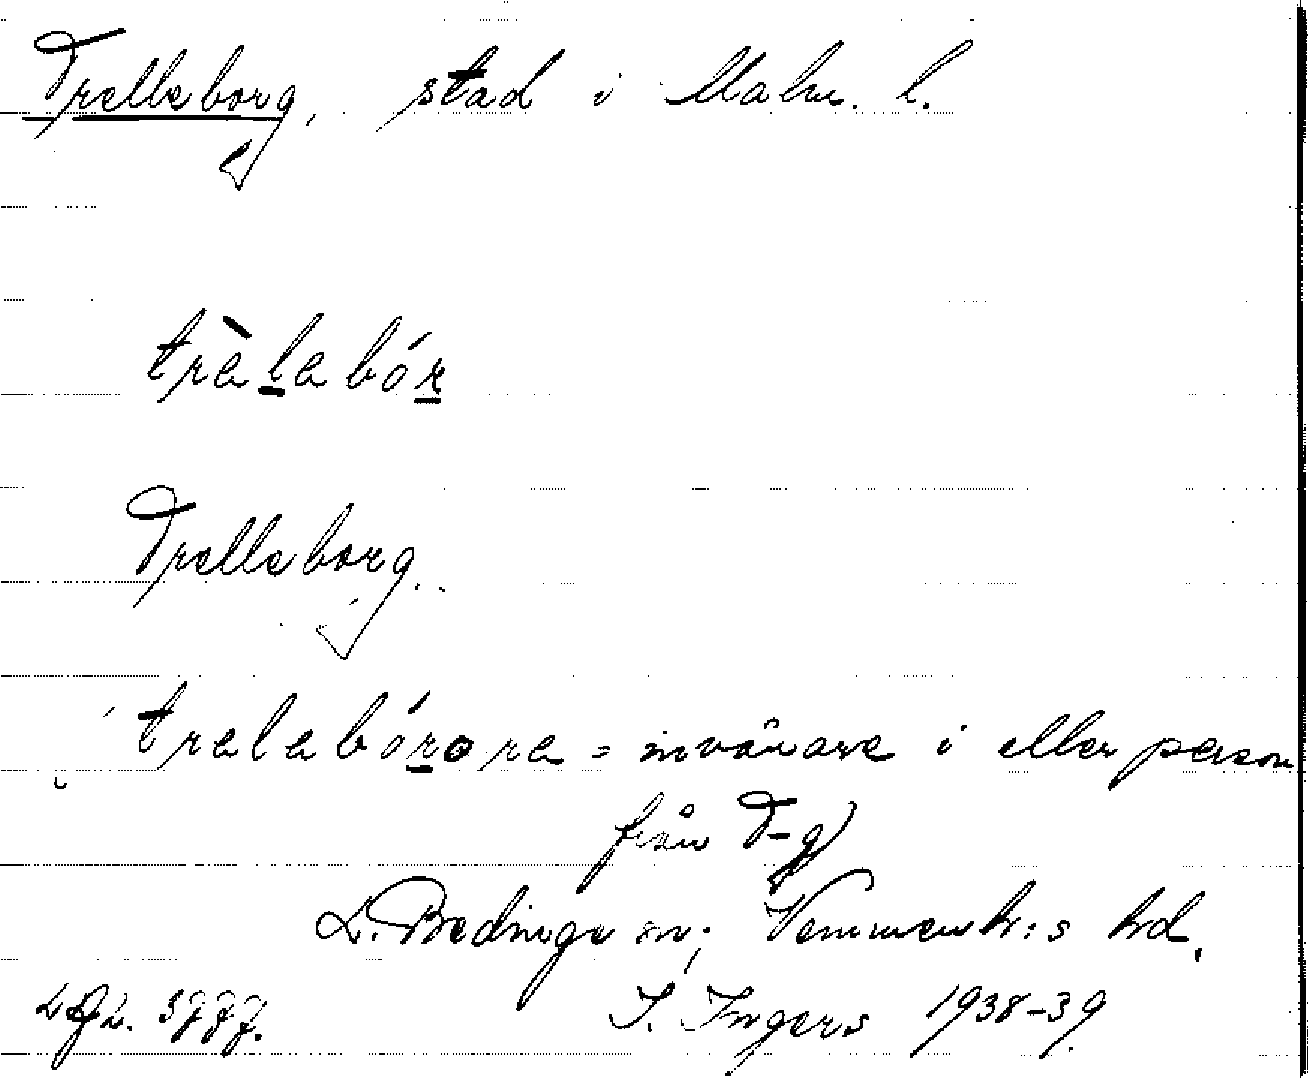 Trelleborg, stad i Malm. l.
tràlabór
Trelleborg.
tralabórora = invånare i eller person
från T-g
L. Beddinge sn; Vemmenh:s hd.
I. Ingers 1938-39